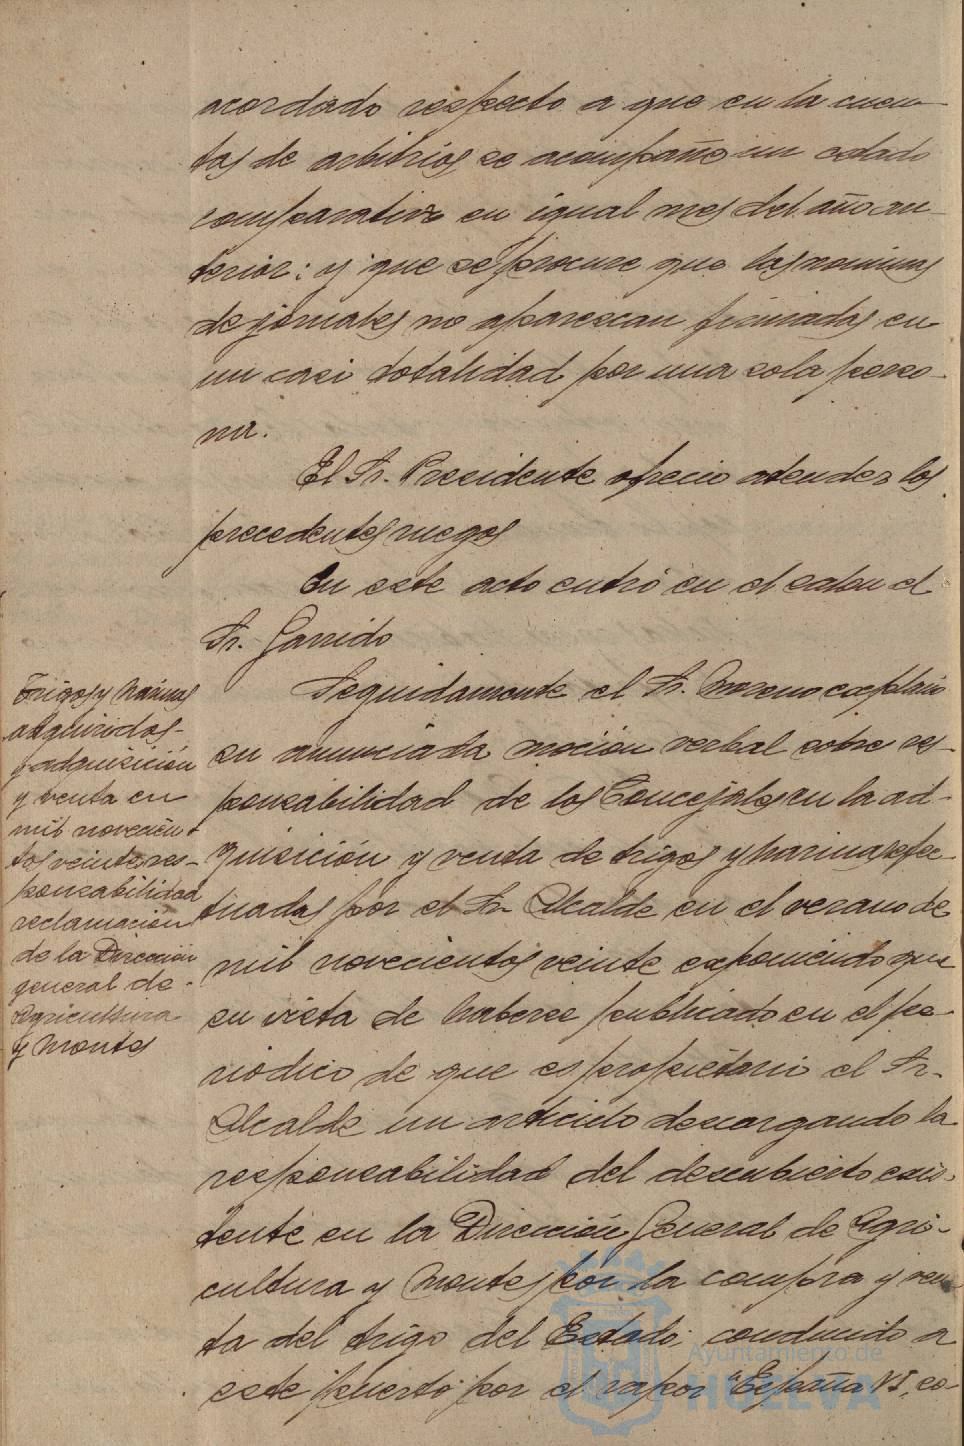 acordado respecto a que en la cuen-
tas de arbitrios se acompañe un estado
comparativo en igual mes del año an-
terior: y que se procure que las nominas
de jornales no aparezcan firmadas en
su casi totalidad por una sola perso-
na.
El Sr. Presidente ofrecio atender los
precedentes ruegos
En este acto entró en el salon el
Sr. Garrido
Trigos y harinas
adquiridos-
y adquisición
y venta en
mil novecien-
tos veinte, res-
ponsabilidad
reclamacion
de la Direccion
general de
Agricultura
y Montes
Seguidamente el Sr. Moreno explanó
su anunciada moción verbal sobre res-
ponsabilidad de los Concejales en la ad-
quisición y venta de trigos y harinas efec-
tuadas por el Sr. Alcalde en el verano de
mil novecientos veinte exponiendo que
en vista de haberse publicado en el pe-
riodico de que es propietario el Sr.
Alcalde un articulo descargando la
responsabilidad del descubierto exis-
tente en la Dirección General de Agri-
cultura y Montes por la compra y ven-
ta del trigo del Estado, conducido a
este puerto por el vapor "España VI, co-
Ayuntamiento de
HUELVA